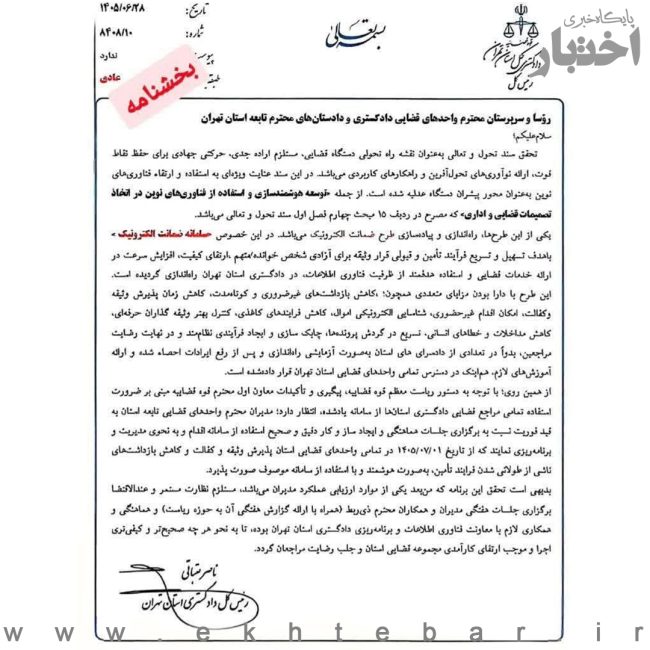 پایگاه خبری
اختبار
قوه قضاییه
دادگستری کل استان تهران
رئیس کل
بسمه تعالی
تاریخ: ۱۴۰۵/۰۶/۲۸
شماره: ۸۴۰۸/۱۰
پیوست: ندارد
عادی
بخشنامه
رؤسا و سرپرستان محترم واحدهای قضایی دادگستری و دادستان‌های محترم تابعه استان تهران
سلام علیکم؛
تحقق سند تحول و تعالی به‌عنوان نقشه راه تحولی دستگاه قضایی، مستلزم اراده جدی، حرکتی جهادی برای حفظ نقاط
قوت، ارائه نوآوری‌های تحول‌آفرین و راهکارهای کاربردی می‌باشد. در این سند عنایت ویژه‌ای به استفاده و ارتقاء فناوری‌های
نوین به‌عنوان محور پیشران دستگاه عدلیه شده است. از جمله «توسعه هوشمندسازی و استفاده از فناوری‌های نوین در اتخاذ
تصمیمات قضایی و اداری» که مصرح در ردیف ۱۵ مبحث چهارم فصل اول سند تحول و تعالی می‌باشد.
یکی از این طرح‌ها، راه‌اندازی و پیاده‌سازی طرح ضمانت الکترونیک می‌باشد. در این خصوص «سامانه ضمانت الکترونیک»
باهدف تسهیل و تسریع فرآیند تأمین و قبولی قرار وثیقه برای آزادی شخص خوانده/متهم ،ارتقای کیفیت، افزایش سرعت در
ارائه خدمات قضایی و استفاده هدفمند از ظرفیت فناوری اطلاعات، در دادگستری استان تهران راه‌اندازی گردیده است.
این طرح با دارا بودن مزایای متعددی همچون؛ ،کاهش بازداشت‌های غیرضروری و کوتاه‌مدت، کاهش زمان پذیرش وثیقه
وکفالت، امکان اقدام غیرحضوری، شناسایی الکترونیکی اموال، کاهش فرایندهای کاغذی، کنترل بهتر وثیقه گذاران حرفه‌ای،
کاهش مداخلات و خطاهای انسانی، تسریع در گردش پرونده‌ها، چابک سازی و ایجاد فرآیندی نظام‌مند و در نهایت رضایت
مراجعین، بدواً در تعدادی از دادسرای های استان به‌صورت آزمایشی راه‌اندازی و پس از رفع ایرادات احصاء شده و ارائه
آموزش‌های لازم، هم‌اینک در دسترس تمامی واحدهای قضایی استان تهران قرار داده‌شده است.
از همین روی؛ با توجه به دستور ریاست معظم قوه قضاییه، پیگیری و تأکیدات معاون اول محترم قوه قضاییه مبنی بر ضرورت
استفاده تمامی مراجع قضایی دادگستری استان‌ها از سامانه یادشده، انتظار دارد؛ مدیران محترم واحدهای قضایی تابعه استان به
قید فوریت نسبت به برگزاری جلسات هماهنگی و ایجاد ساز و کار دقیق و صحیح استفاده از سامانه اقدام و به نحوی مدیریت و
برنامه‌ریزی نمایند که از تاریخ ۱۴۰۵/۰۷/۰۱ در تمامی واحدهای قضایی استان پذیرش وثیقه و کفالت و کاهش بازداشت‌های
ناشی از طولانی شدن فرایند تأمین، به‌صورت هوشمند و با استفاده از سامانه موصوف صورت پذیرد.
بدیهی است تحقق این برنامه که من‌بعد یکی از موارد ارزیابی عملکرد مدیران می‌باشد، مستلزم نظارت مستمر و عندالاقتضا
برگزاری جلسات هفتگی مدیران و همکاران محترم ذی‌ربط (همراه با ارائه گزارش هفتگی آن به حوزه ریاست) و هماهنگی و
همکاری لازم با معاونت فناوری اطلاعات و برنامه‌ریزی دادگستری استان تهران بوده، تا به نحو هر چه صحیح‌تر و کیفی‌تری
اجرا و موجب ارتقای کارآمدی مجموعه قضایی استان و جلب رضایت مراجعان گردد.
رئیس کل دادگستری استان تهران
www.ekhtebar.ir